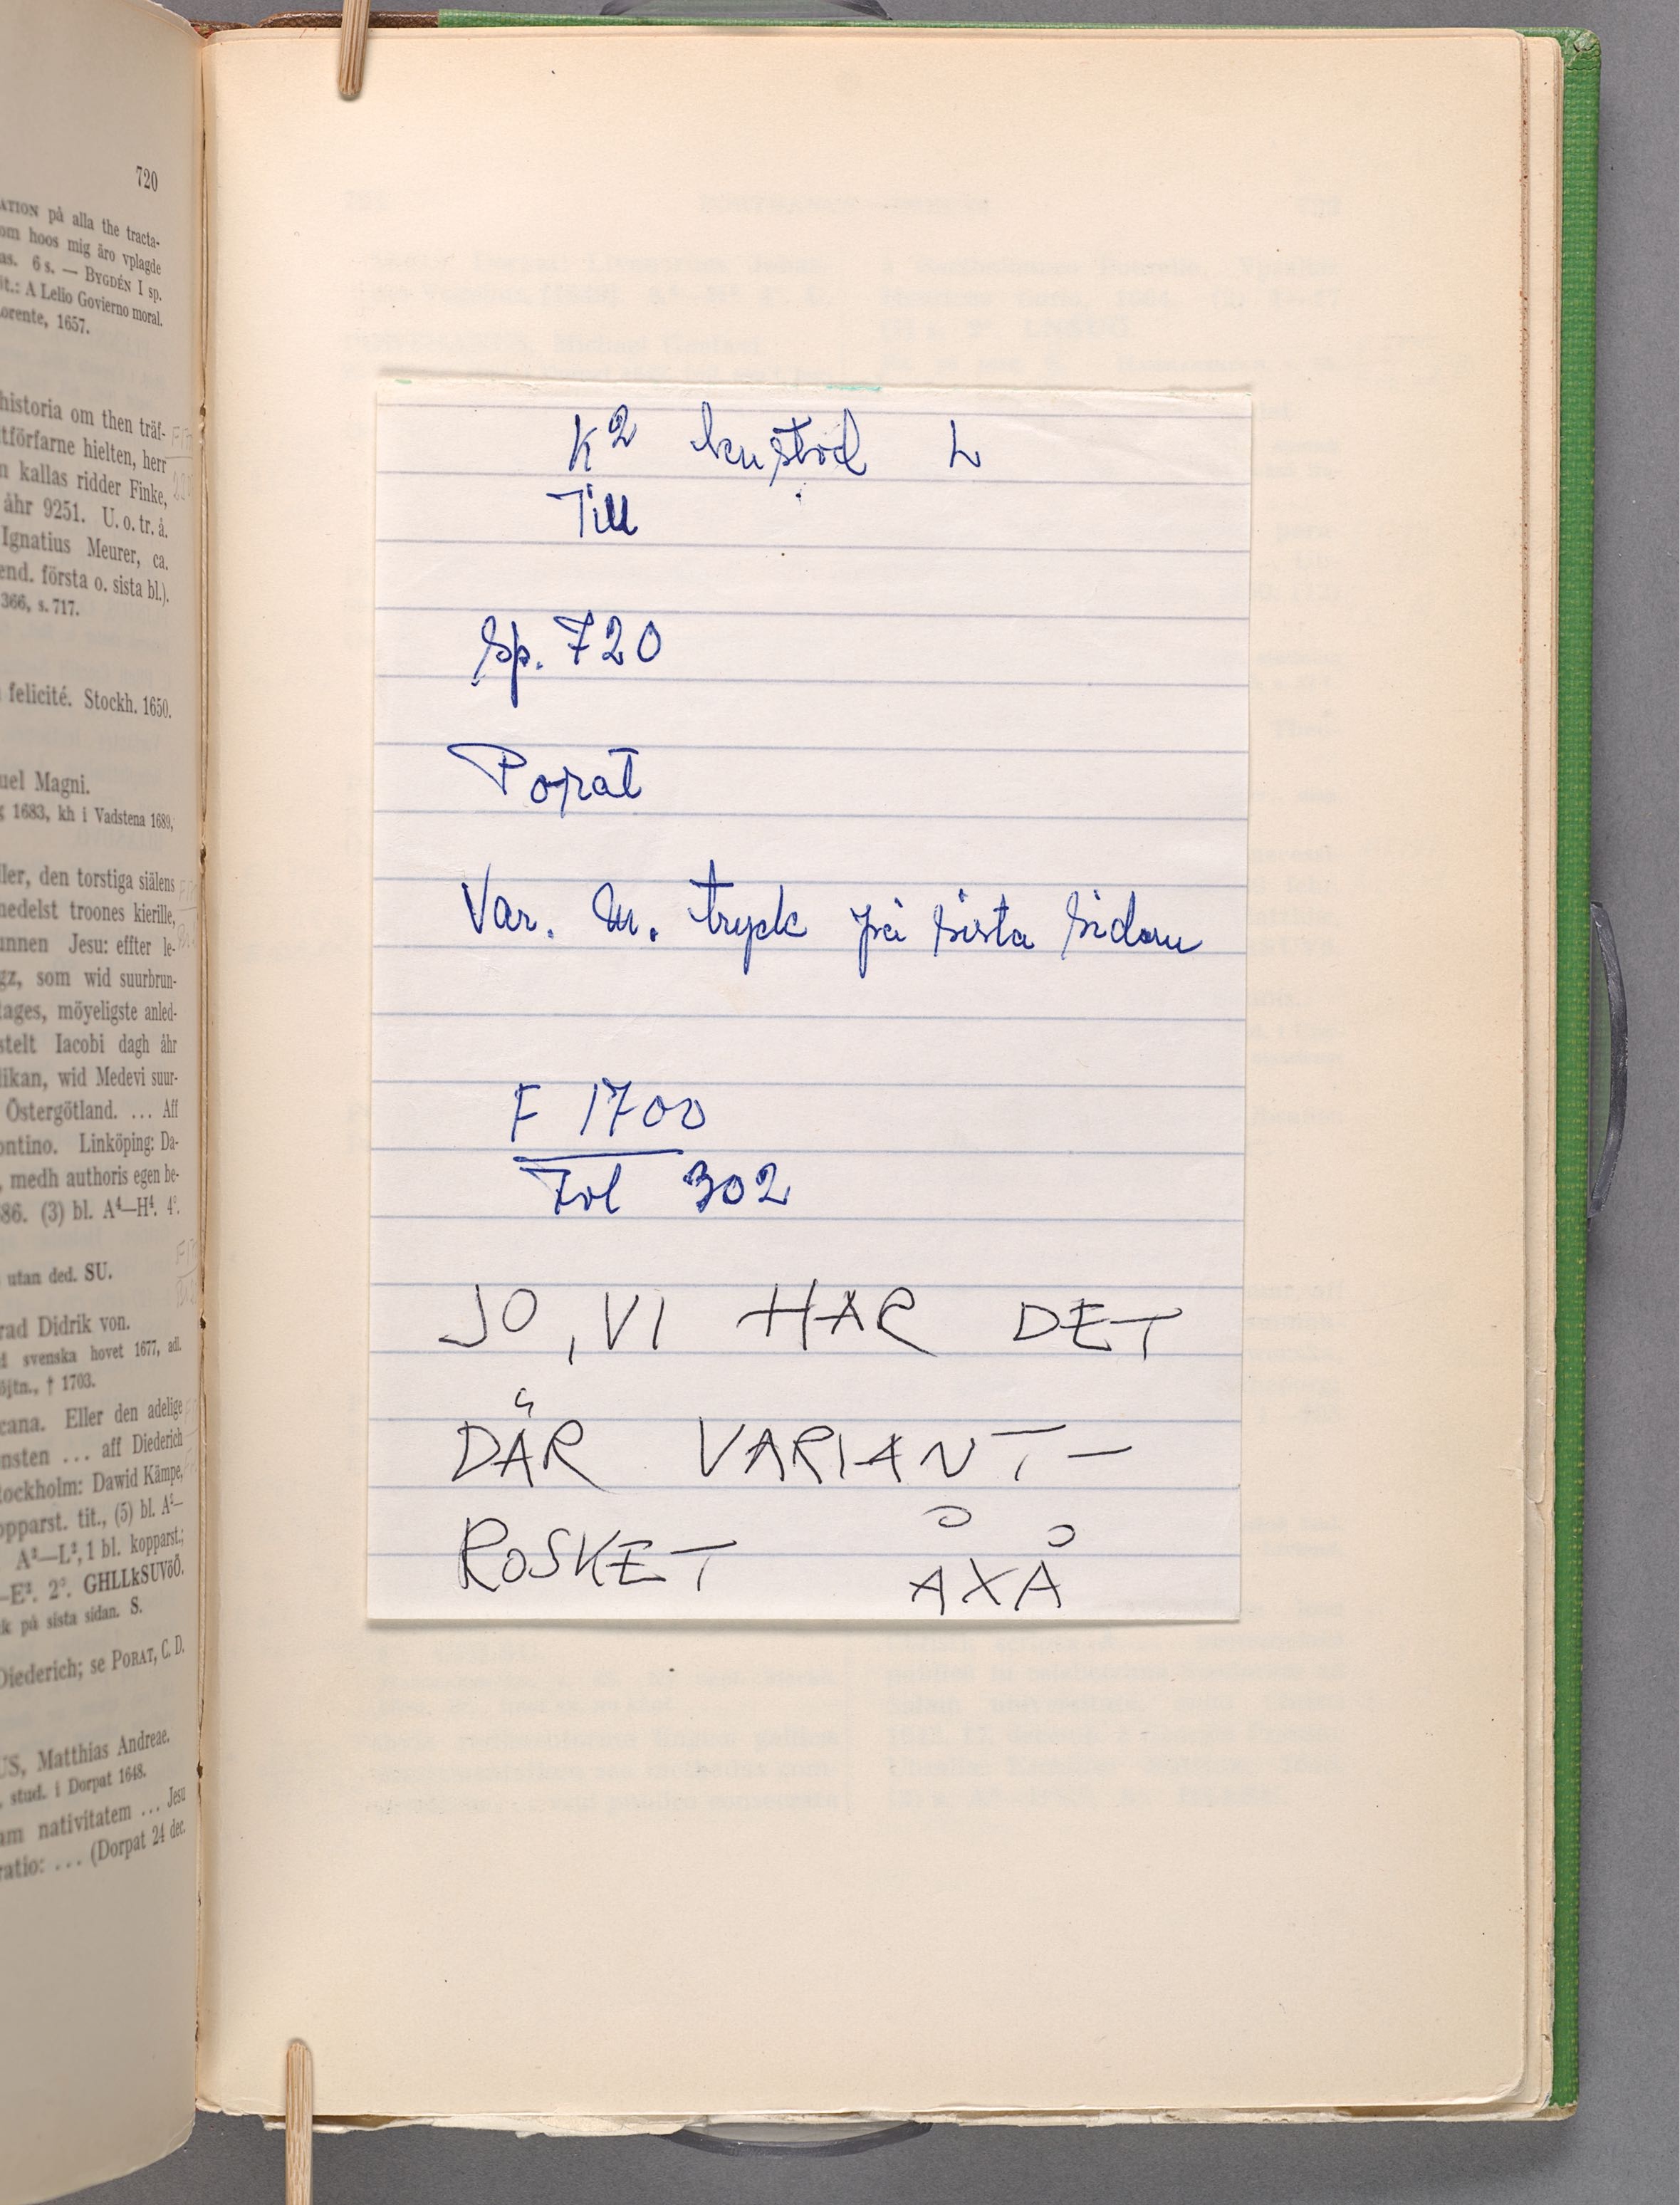 720
ATION på alla the tracta-
om hoos mig äro vplagde
as. 6 s. — BYGDÉN I sp.
it.: A Lelio Govierno moral.
orente, 1657.
historia om then träf-
ttförfarne hielten, herr
n kallas ridder Finke,
åhr 9251. U. o. tr. å.
Ignatius Meurer, ca.
end. första o. sista bl.).
366, s. 717.
felicité. Stockh. 1650.
uel Magni.
1683, kh i Vadstena 1689,
ller, den torstiga siälens
medelst troones kierille,
unnen Jesu: effter le-
gz, som wid suurbrun-
tages, möyeligste anled-
stelt Iacobi dagh åhr
likan, wid Medevi suur-
Östergötland. ... Aff
ontino. Linköping: Da-
, medh authoris egen be-
86. (3) bl. A⁴—H⁴. 4°.
utan ded. SU.
rad Didrik von.
svenska hovet 1677, adl.
öjtn., † 1703.
cana. Eller den adelige
nsten ... aff Diederich
tockholm: Dawid Kämpe,
opparst. tit., (5) bl. A²—
A²—L², 1 bl. kopparst.;
—E². 2°. GHLLkSUVöÖ.
k på sista sidan. S.
Diederich; se PORAT, C. D.
US, Matthias Andreae.
stud. i Dorpat 1648.
am nativitatem ... Jesu
ratio: ... (Dorpat 24 dec.
K² kustod L
Till
Sp. 720
Porat
Var. m. tryck på sista sidan
F 1700
Fol 302
JO, VI HAR DET
DÄR VARIANT-
ROSKET ÅXÅ